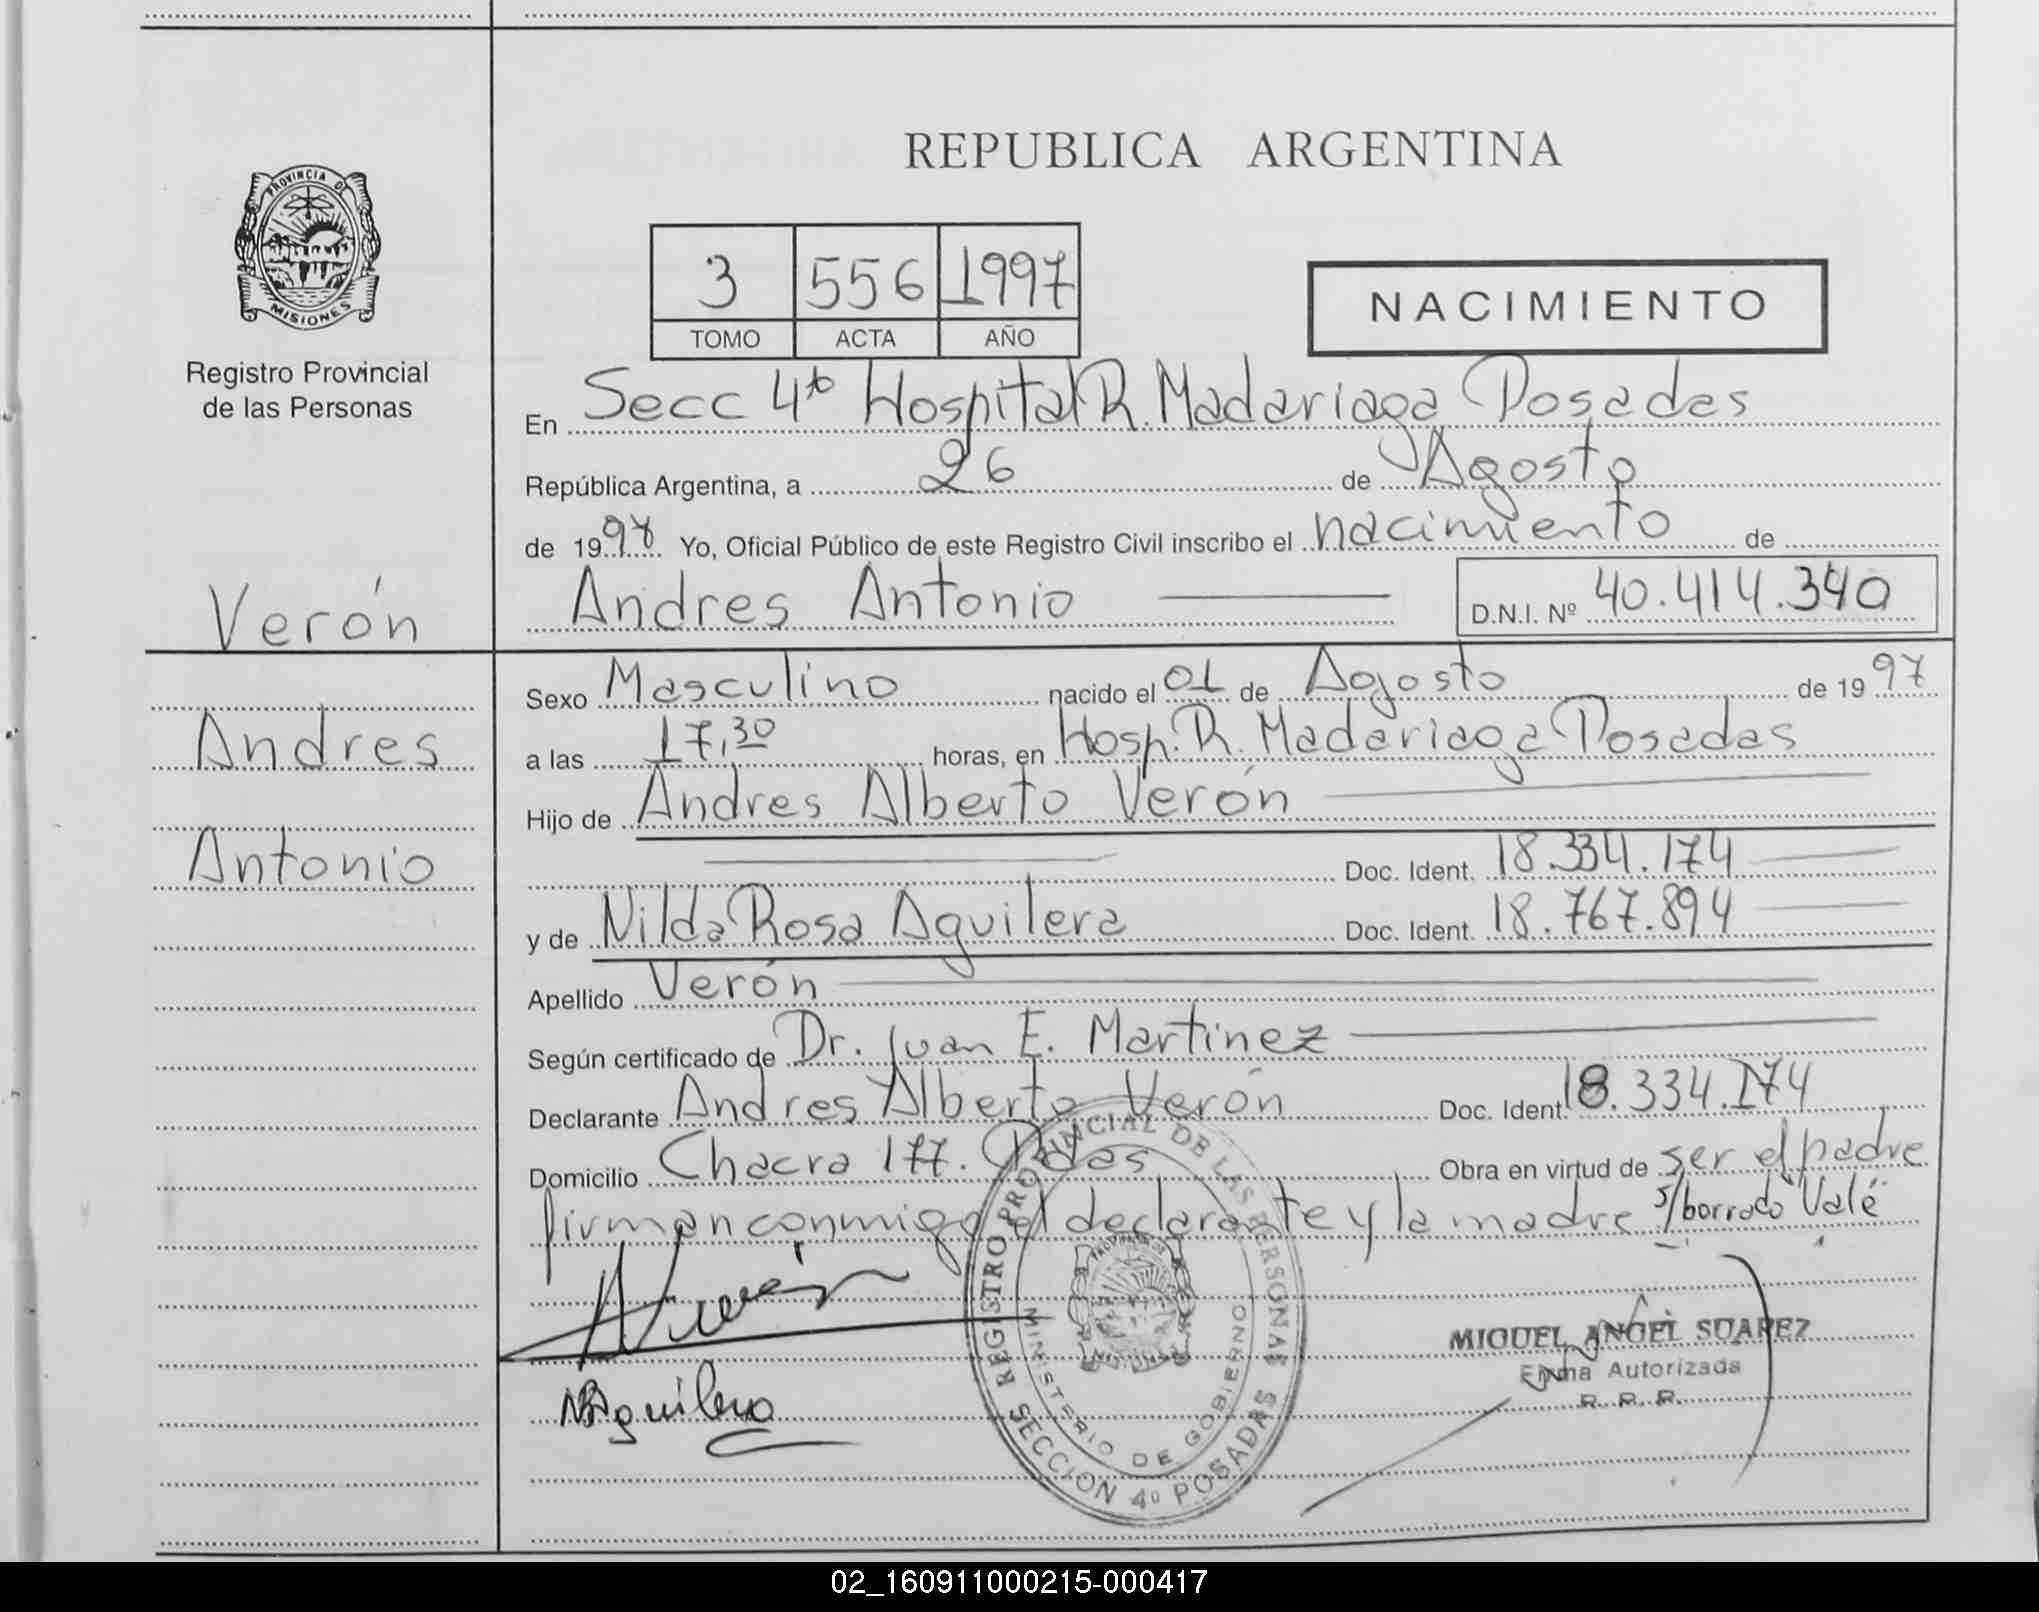 REPUBLICA ARGENTINA
PROVINCIA DE
MISIONES
Registro Provincial
de las Personas
3 556 1997
TOMO ACTA AÑO
NACIMIENTO
En Secc 4ta Hospital R. Madariaga Posadas
República Argentina, a 26 de Agosto
de 1997 Yo, Oficial Público de este Registro Civil inscribo el nacimiento de
Andres Antonio D.N.I. Nº 40.414.340
Verón
Andres
Antonio
Sexo Masculino nacido el 01 de Agosto de 1997
a las 17,30 horas, en Hosp. R. Madariaga Posadas
Hijo de Andres Alberto Verón
Doc. Ident. 18.334.174
y de Nilda Rosa Aguilera Doc. Ident. 18.767.894
Apellido Verón
Según certificado de Dr. Juan E. Martinez
Declarante Andres Alberto Verón Doc. Ident. 18.334.174
Domicilio Chacra 177. Pdas Obra en virtud de ser el padre
firman conmigo el declarante y la madre s/borrado "Vale"
NRAguilera
REGISTRO PROVINCIAL DE LAS PERSONAS
MINISTERIO DE GOBIERNO
SECCION 4º POSADAS
MIGUEL ANGEL SUAREZ
Firma Autorizada
R. P. P.
02_160911000215-000417